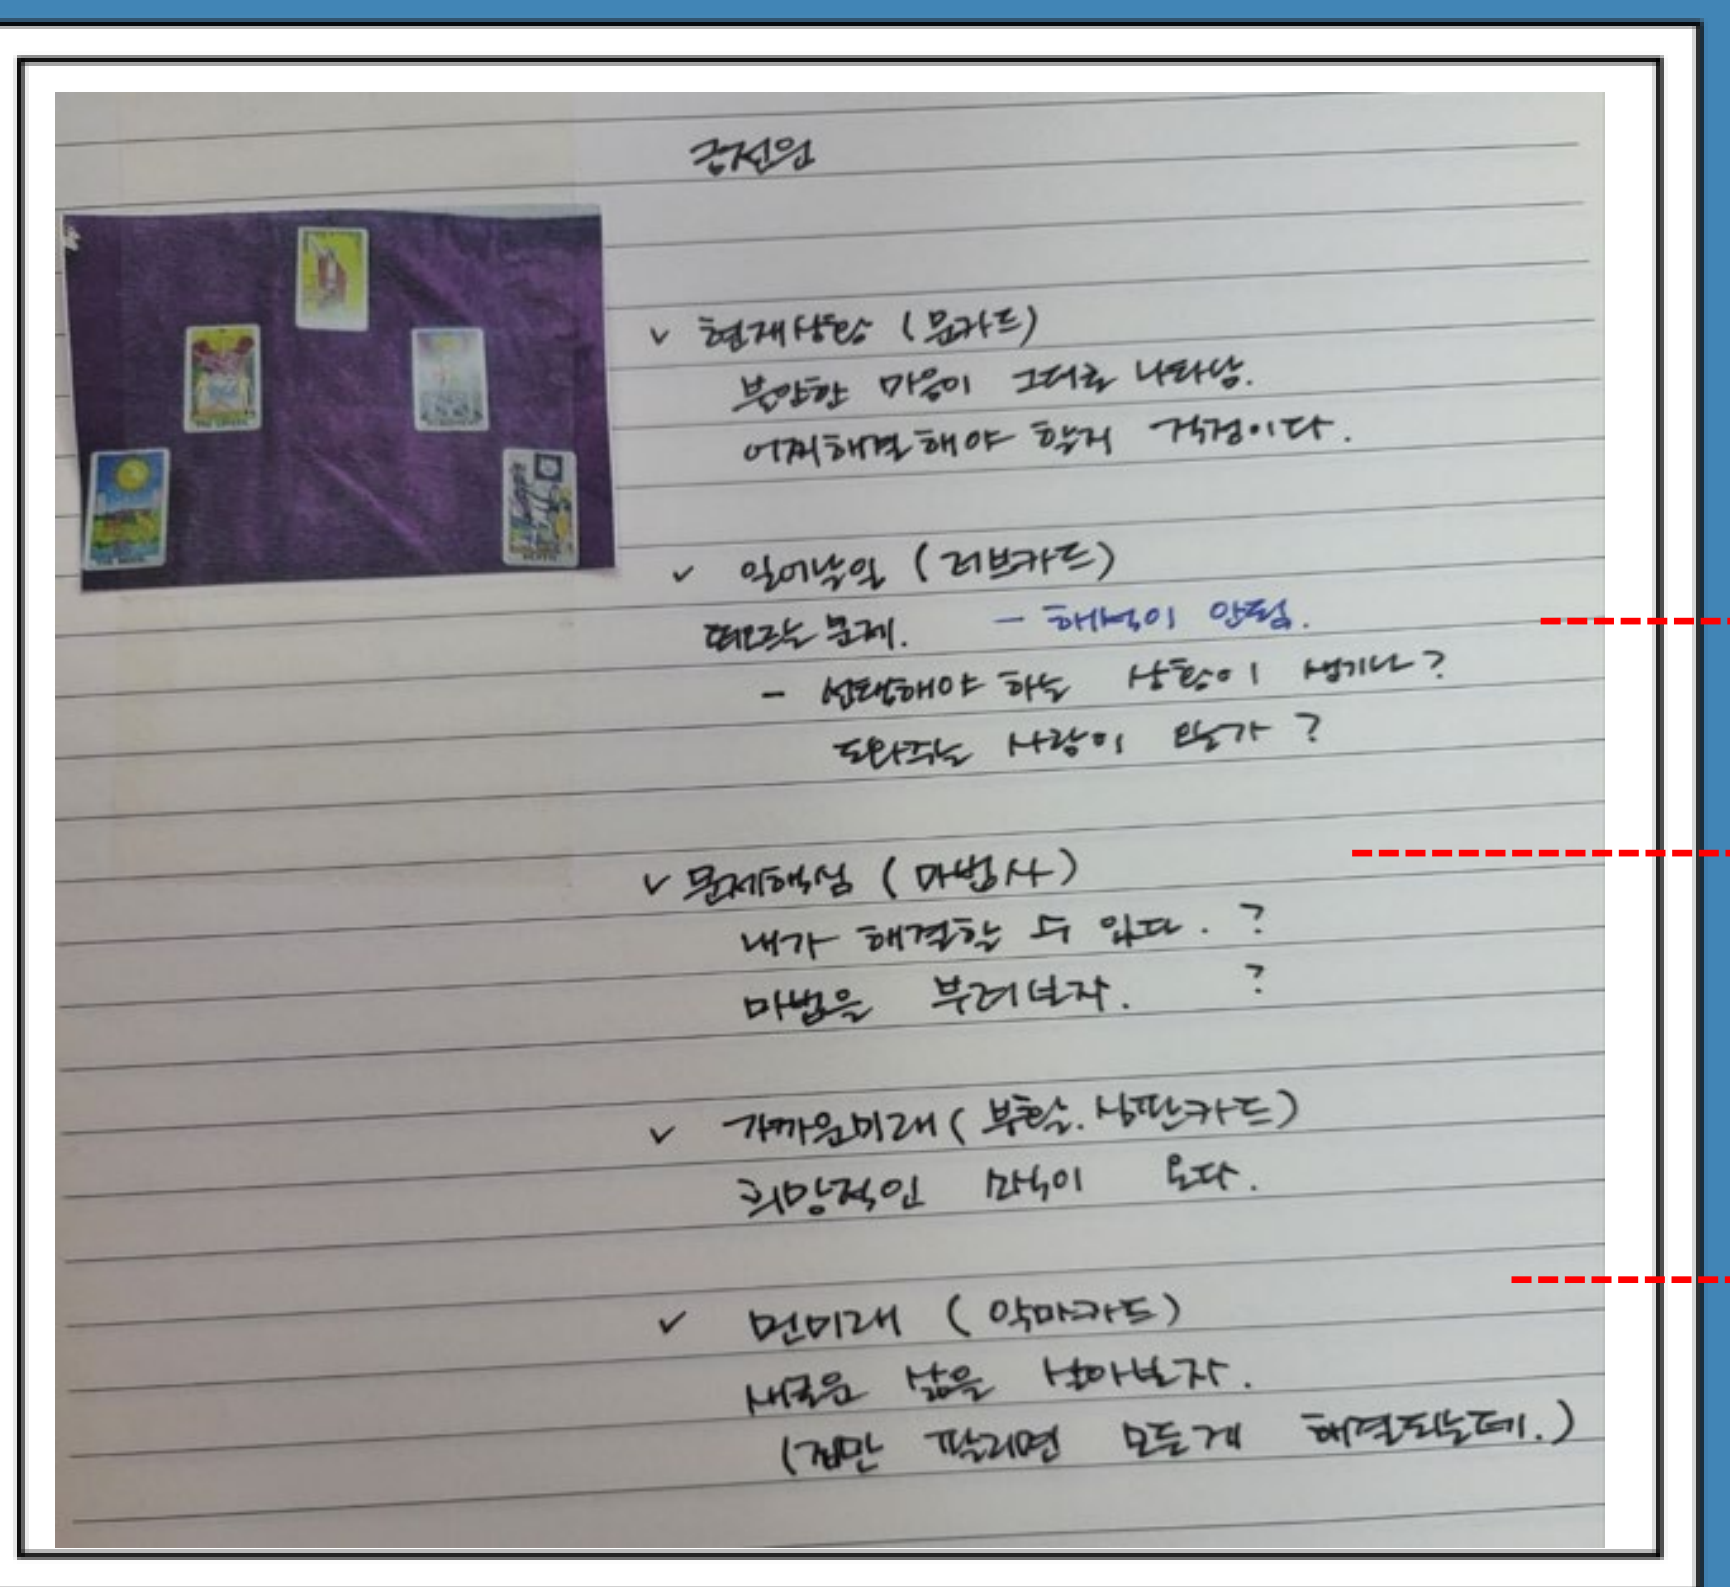 금전원
✓ 현재상황 (문카드)
불안한 마음이 그대로 나타남.
어찌해결해야 할지 걱정이다.
✓ 일어날일 (러브카드)
떠오르는 문제. - 해석이 안됨.
- 선택해야 하는 상황이 생기나?
도와주는 사람이 오는가?
✓ 문제핵심 (마법사)
내가 해결할 수 있다. ?
마법을 부려보자. ?
✓ 가까운미래 (부활. 심판카드)
희망적인 소식이 오다.
✓ 먼미래 (악마카드)
새로운 삶을 살아보자.
(집만 팔리면 모든게 해결되는데.)